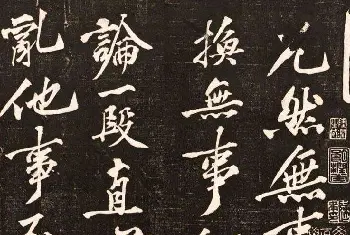 兀然無事
換無事何
論一段直
亂他事不